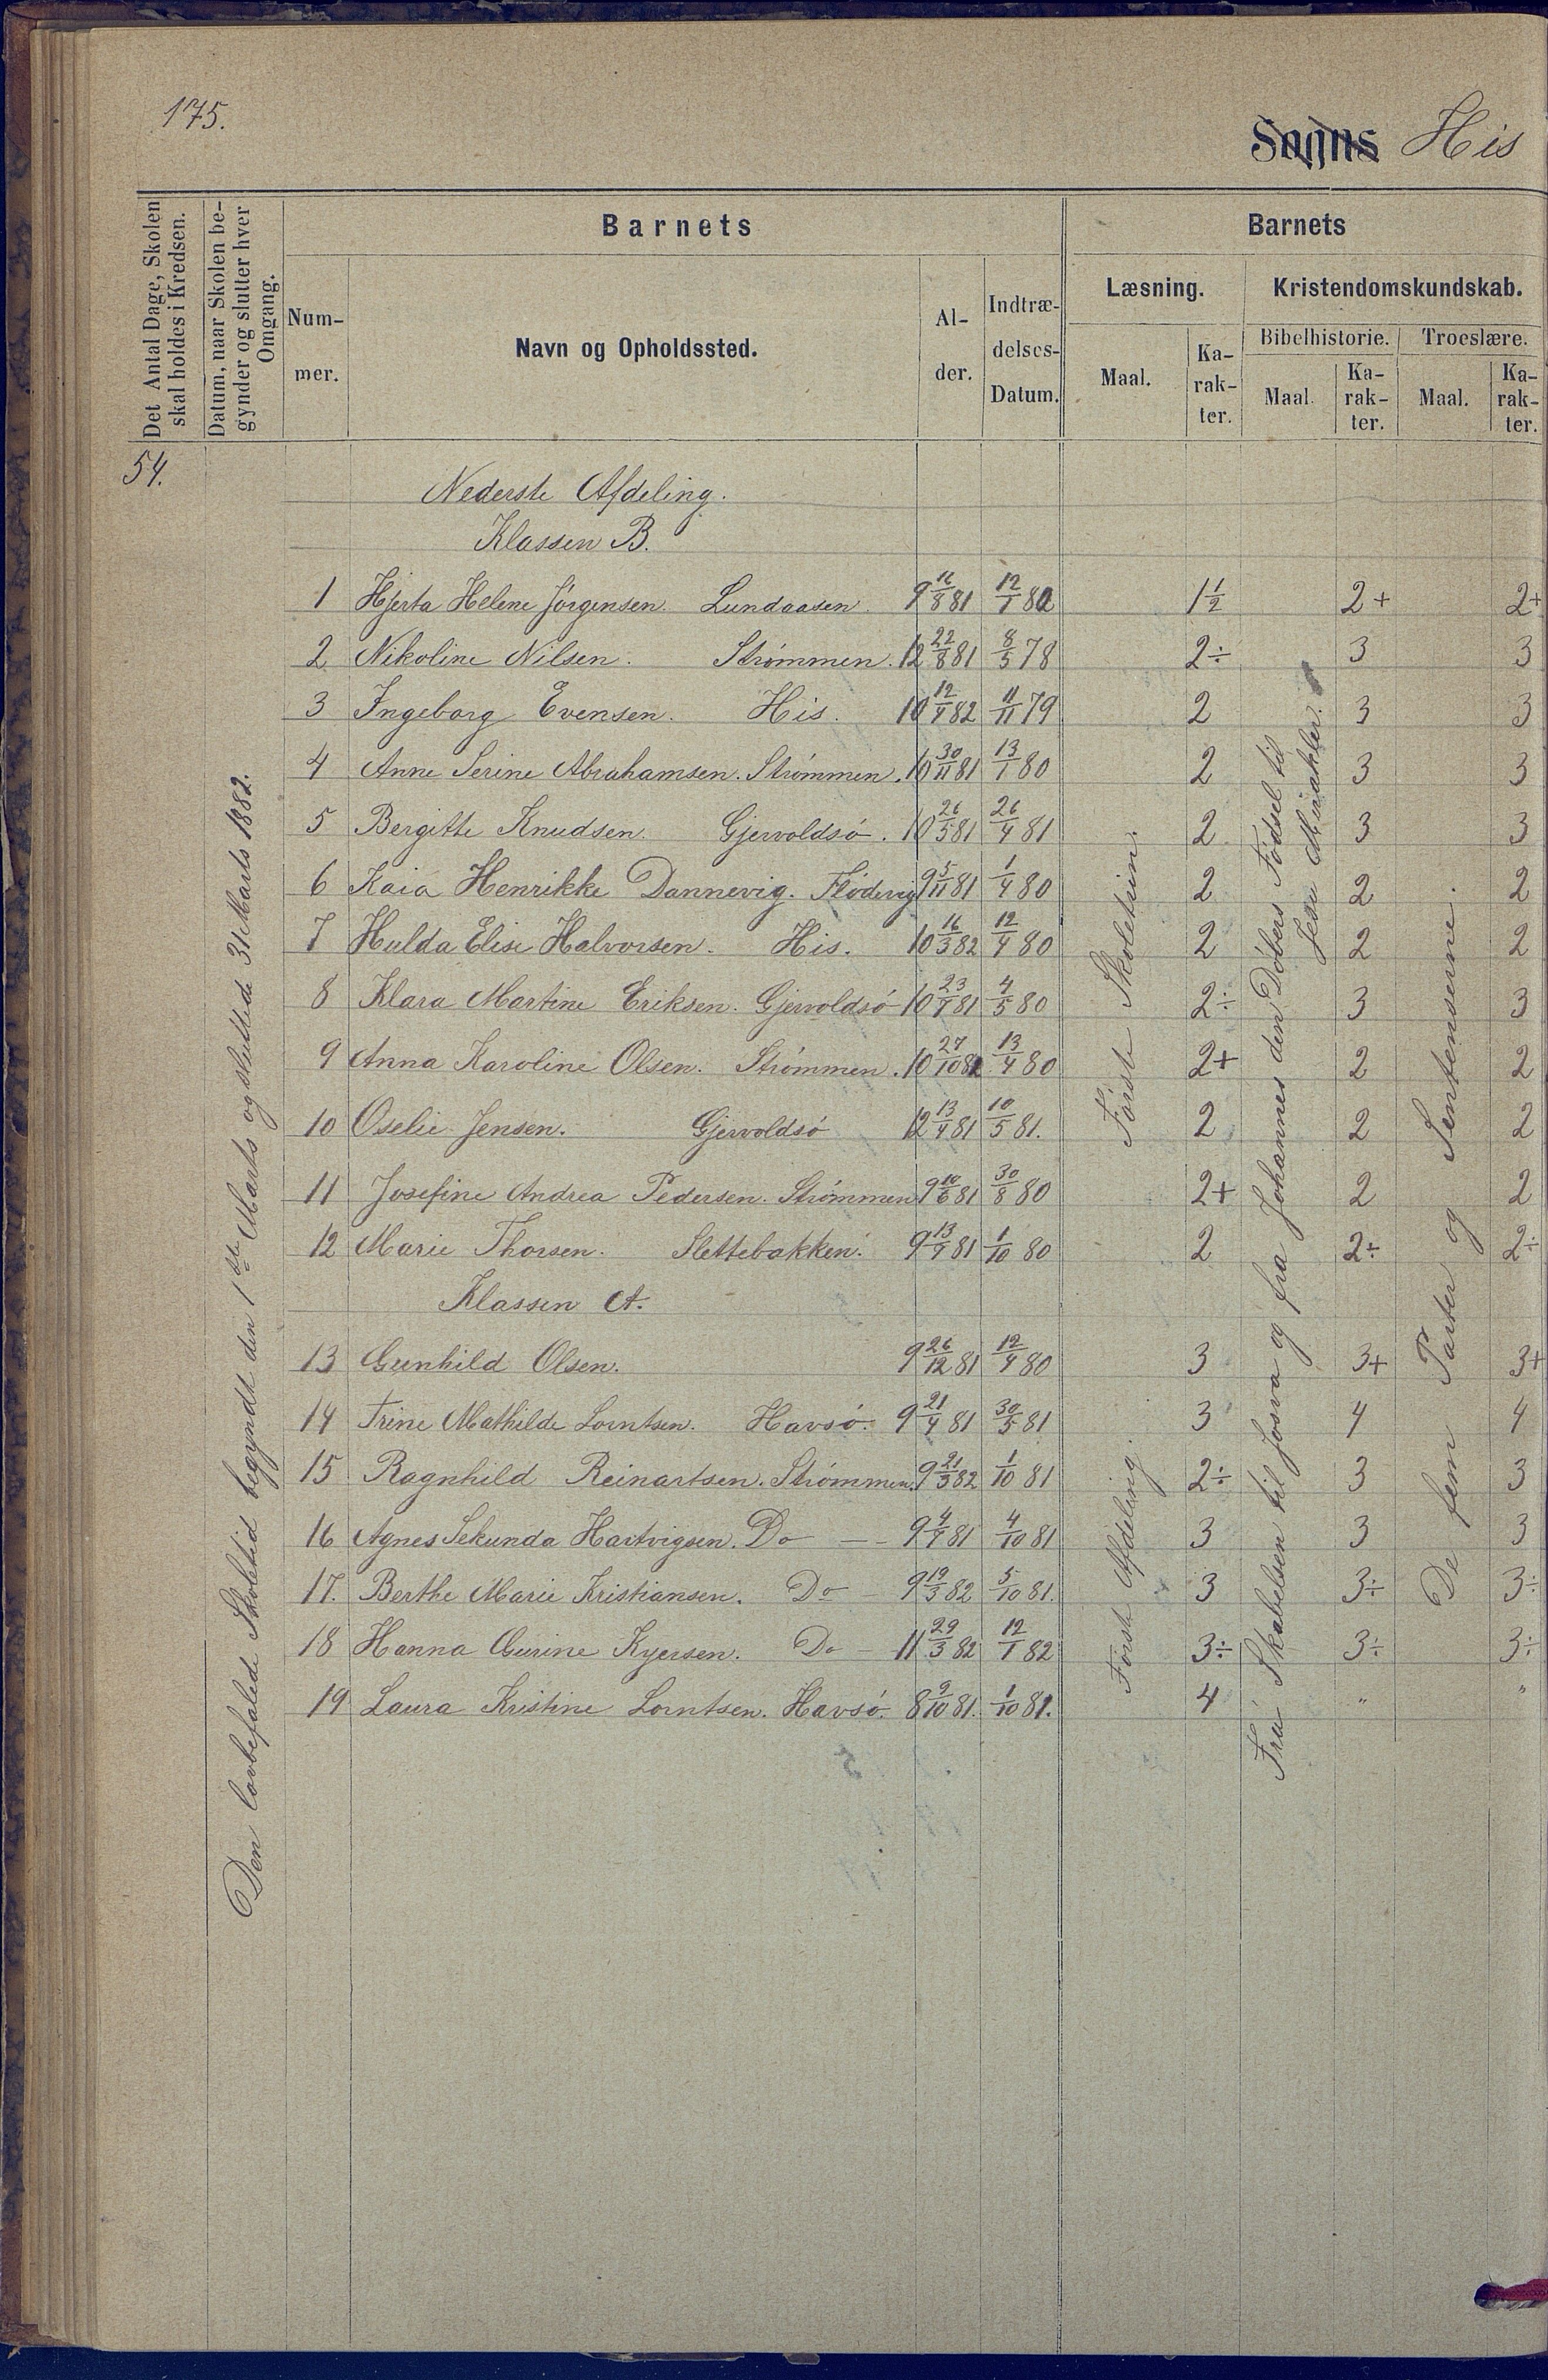 175.
Sogns His
Det Antal Dage, Skolen skal holdes i Kredsen.
Datum, naar Skolen begynder og slutter hver Omgang.
Barnets
Barnets
Nummer.
Navn og Opholdssted.
Alder.
Indtrædelses-Datum.
Læsning.
Kristendomskundskab.
Maal.
Karakter.
Bibelhistorie.
Troeslære.
Maal.
Karakter.
Maal.
Karakter.
54.
Den lovbefalede Skoletid begyndt den 1ste Marts og sluttede 31 Marts 1882.
Nederste Afdeling.
Klassen B.
1 Hjerta Helene Jørgensen. Lundaasen. 9 16/8 81 12/1 80 1 1/2 2+ 2+
2 Nikoline Nilsen. Strømmen. 12 22/8 81 8/5 78 2÷ 3 3
3 Ingeborg Evensen. His. 10 12/1 82 11/11 79 2 3 3
4 Anne Serine Abrahamsen. Strømmen. 10 30/11 81 13/1 80 2 3 3
5 Bergitte Knudsen. Gjervoldsø. 10 26/5 81 26/4 81 2 3 3
6 Kaia Henrikke Dannevig. Flødevig 9 5/11 81 1/4 80 2 2 2
7 Hulda Elise Halvorsen. His. 10 16/3 82 12/4 80 2 2 2
8 Klara Martine Eriksen. Gjervoldsø 10 23/9 81 4/5 80 2÷ 3 3
9 Anna Karoline Olsen. Strømmen. 10 27/10 81 13/4 80 2+ 2 2
10 Oselie Jensen. Gjervoldsø 12 13/4 81 10/5 81. 2 2 2
11 Josefine Andrea Pedersen. Strømmen 9 10/6 81 30/8 80 2+ 2 2
12 Marie Thorsen. Slettebakken. 9 13/9 81 1/10 80 2 2÷ 2÷
Klassen A.
13 Gunhild Olsen. 9 26/12 81 12/4 80 3 3+ 3+
14 Trine Mathilde Lorntsen. Havsø. 9 21/4 81 30/5 81 3 4 4
15 Ragnhild Reinartsen. Strømmen. 9 21/3 82 1/10 81 2÷ 3 3
16 Agnes Sekunda Hartvigsen. Do — 9 4/9 81 4/10 81 3 3 3
17. Berthe Marie Kristiansen. Do 9 19/3 82 5/10 81. 3 3÷ 3÷
18 Hanna Gurine Kyersen. Do — 11 29/3 82 12/1 82 3÷ 3÷ 3÷
19 Laura Kristine Lorntsen. Havsø. 8 9/10 81. 1/10 81. 4 " "
Første Skoletrin.
Første Afdeling.
Fra Skabelsen til Josva og fra Johannes den Døbers Fødsel til
Jesu Mirakler.
De fem Parter og Sentenserne.